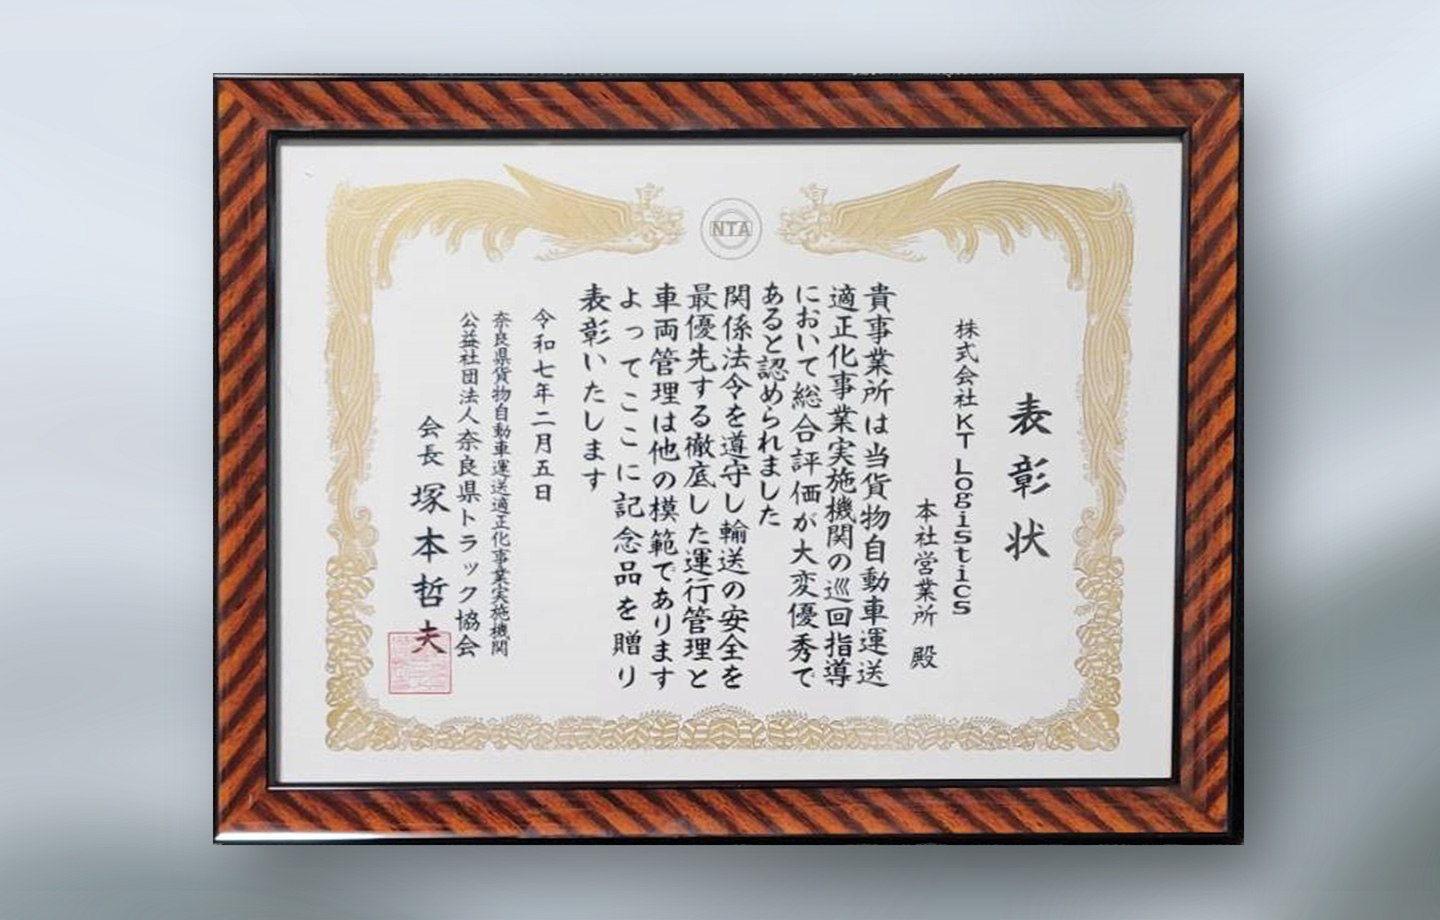 NTA
表彰状
株式会社 KT Logistics
本社営業所 殿
貴事業所は当貨物自動車運送
適正化事業実施機関の巡回指導
において総合評価が大変優秀で
あると認められました
関係法令を遵守し輸送の安全を
最優先する徹底した運行管理と
車両管理は他の模範であります
よってここに記念品を贈り
表彰いたします
令和七年二月五日
奈良県貨物自動車運送適正化事業実施機関
公益社団法人奈良県トラック協会
会長 塚本哲夫